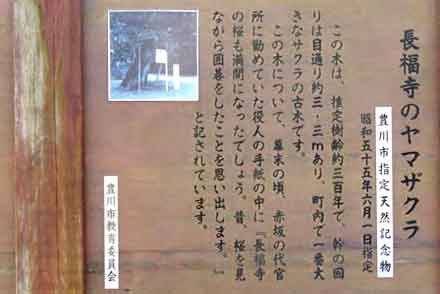 長福寺のヤマザクラ
豊川市指定天然記念物
昭和五十五年六月一日指定
この木は、推定樹齢約三百年で、幹の回
りは目通り約三・三mあり、町内で一番大
きなサクラの古木です。
この木について、幕末の頃、赤坂の代官
所に勤めていた役人の手紙の中に『長福寺
の桜も満開になったでしょう。昔、桜を見
ながら囲碁をしたことを思い出します。』
と記されています。
豊川市教育委員会